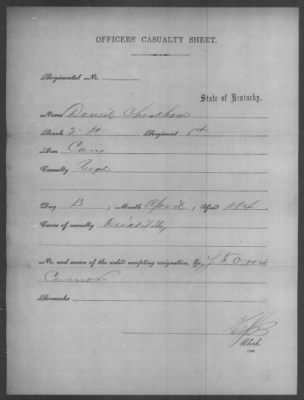 OFFICERS' CASUALTY SHEET.
Regimental No.
State of Kentucky.
Name Daniel Cheatham
Rank 2 Lt Regiment 6th
Arm Cav
Casualty
Day 13, Month April, Year
Cause of casualty Disability
No. and source of the order accepting resignation, &c.,
Remarks
Clerk.